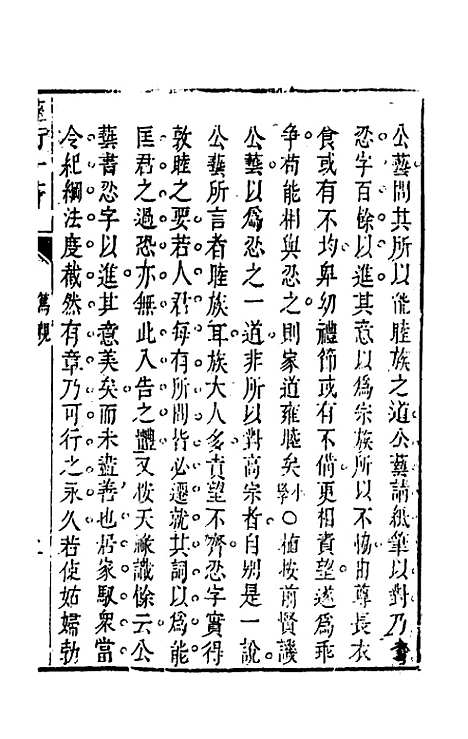 公藝問其所以能睦族之道公藝請紙筆以對乃書
忍字百餘以進其意以爲宗族所以不恊由尊長衣
食或有不均卑幼禮節或有不備更相責望遂爲乖
争苟能相與忍之則家道雍睦矣小學〇植按前賢譏
公藝以爲忍之一道非所以對高宗者自别是一說
公藝所言者睦族耳族大人多責望不齊忍字實得
敦睦之要若人君每有所問皆必遷就其詞以爲能
匡君之過恐亦無此入告之體又按天祿識餘云公
藝書忍字以進其意美矣而未盡善也居家馭衆當
令紀綱法度截然有章乃可行之永久若使姑婦勃
篤親